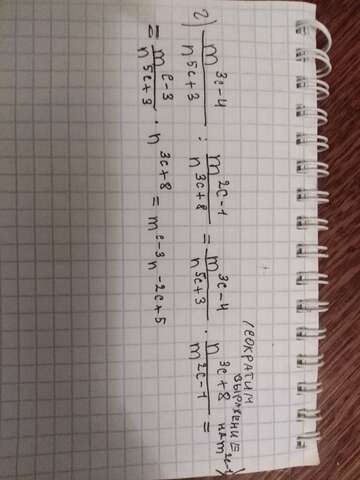 2) m^{3c-4}/n^{5c+3} : m^{2c-1}/n^{3c+8} = m^{3c-4}/n^{5c+3} · n^{3c+8}/m^{2c-1} =
(СОКРАТИМ
ВЫРАЖЕНИЕ
на m^{2c-1})
= m^{c-3}/n^{5c+3} · n^{3c+8} = m^{c-3} n^{-2c+5}